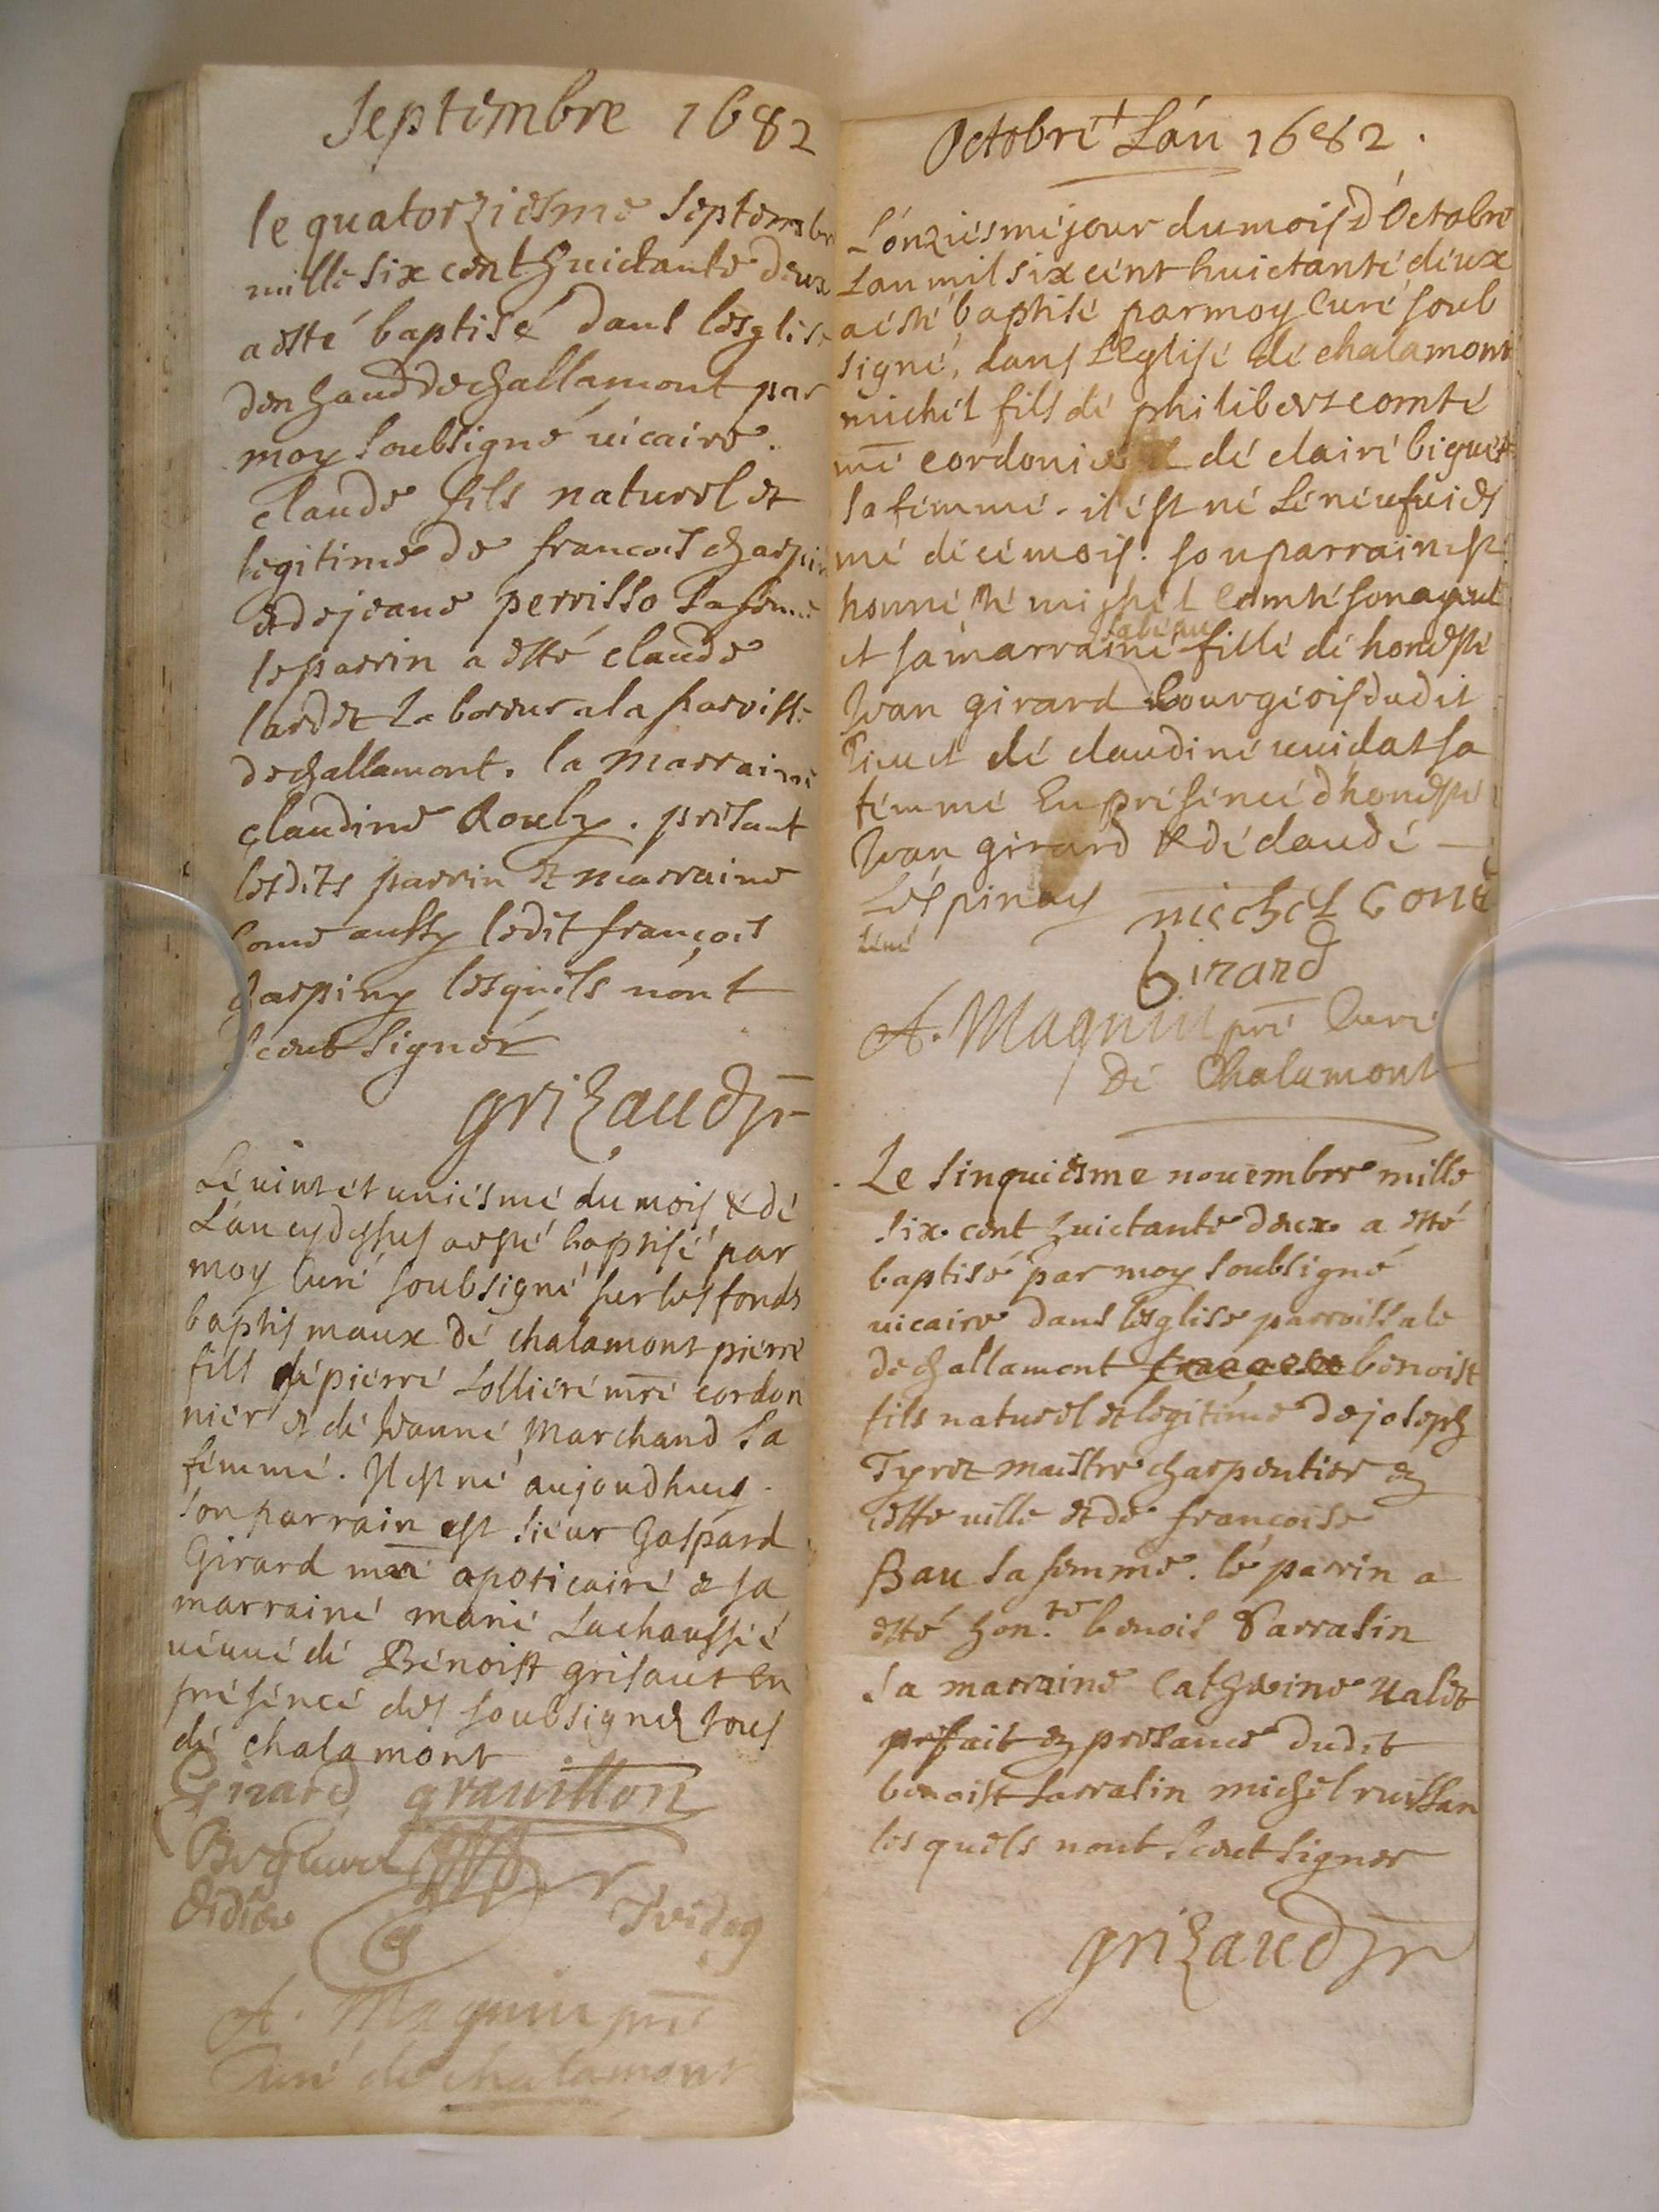 Septembre 1682
le quatorziesme Septembre
mille six cent huictante deux
a esté baptisé dans lesglise
den haud de challamont par
moy soubsigné vicaire.
claude fils naturel et
legitime de francois charpin
et de jeane perrisso sa feme
le parrin a esté claude
lardet laboreur a la parroisse
de challamont. la marraine
claudine Rouly. presant
lesdits parrin et marraine
come aussy ledit françois
charpiny lesquels nont
sceub signér
grizaud pr
Lé vint ét uniésmé du mois & dé
L'an cydessus a esté baptisé par
moy Curé soubsigné sur les fonds
baptismaux dé chalamont piérré
fils dé piérré Lolliéré mré cordon
niér et dé Jeanné Marchand sa
fémmé. Il est né aujoudhuy.
son parrain est sieur Gaspard
Girard mré apoticairé & sa
marrainé marié Lachaussée
véuué dé Bénoist grisaut En
préséncé des soubsignez tous
dé chalamont
Girard gravillon

A. Magnin pré
Curé dé chalamont
Octobré L'an 1682.
L'onziésmé jour du mois d'Octobre
L'an mil six cént huictanté déux
a ésté baptisé par moy Curé soub
signé, dans L'Eglisé dé chalamont
michél fils dé philibert comté
mé cordonier & dé clairé biguet
sa fémmé. il ést né Lé néufuies
mé dé cé mois. son parrain est
honnésté michél Comté son ayeul
isabeau
et sa marrainé fillé dé honesté
Jean girard bourgéois dudit
lieu et dé claudiné uuidat sa
fémmé En présénce d'honesté
Jean girard & dé claudé
Lespinay michel Cont
témé
Girard
A. Magnin pré Curé
Dé Chalamont
Le sinquiesme nouembre mille
six cent huictante deux a esté
baptisé par moy soubsigné
uicaire dans lesglise parroissale
de challamont benoist
fils naturel et legitime de joseph
Tyret maistre charpentier en
cette uille et de françoise
Bau sa femme. le parrin a
esté hon.te benois Sarrasin
sa marraine Catherine Ualet
fait en presance dudit
benoist sarrasin michel ruissan
lesquels nont sceut signer
grizaud pr